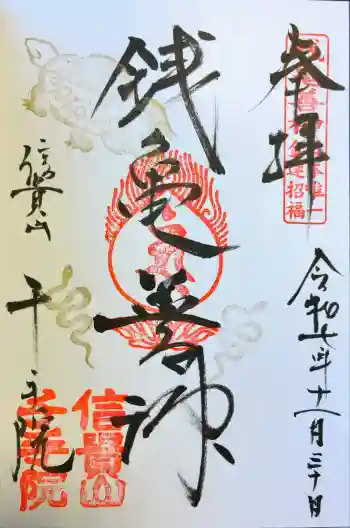 奉拝
唯一
招福
令和七年十一月三十日
銭亀善神
信貴山
千手院
信貴山
千手院